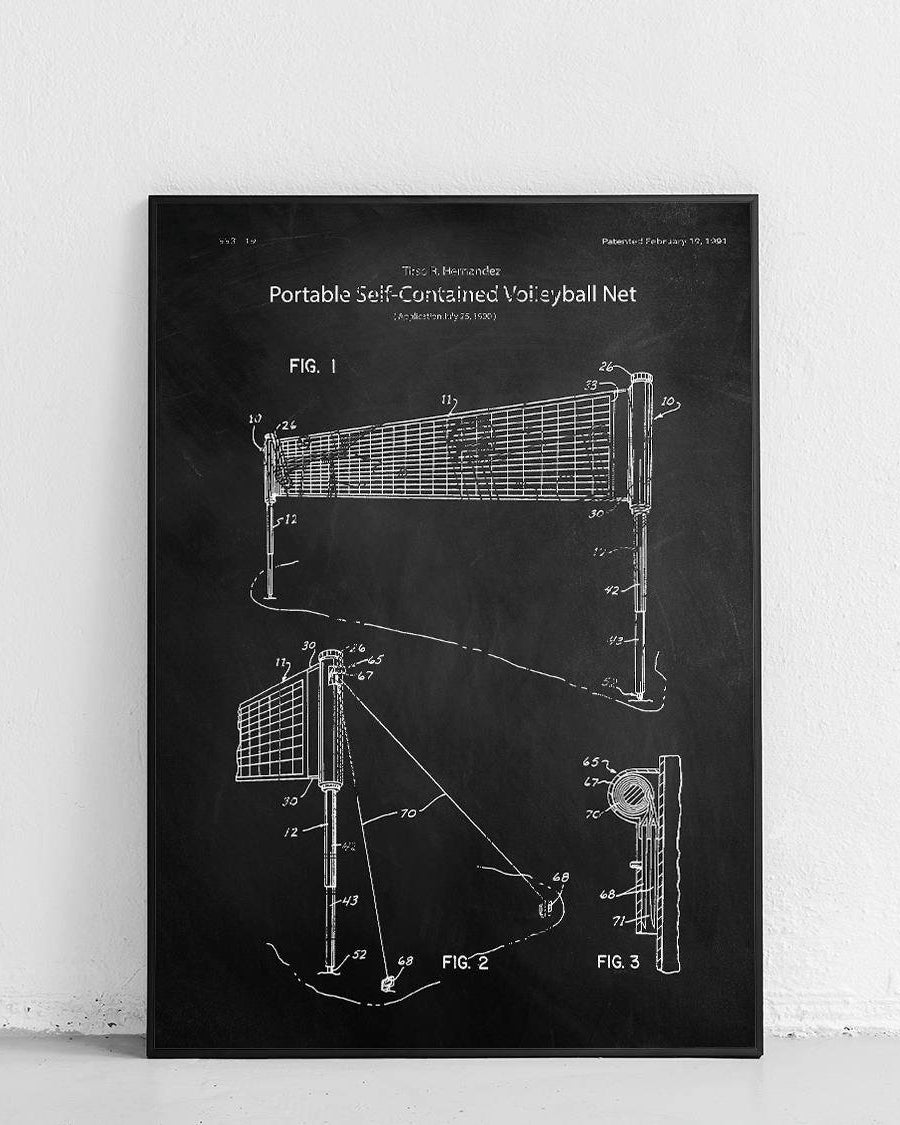 Patented February 19, 1991
Tirso R. Hernandez
Portable Self-Contained Volleyball Net
( Application July 25, 1990 )
FIG. 1
26
33
10
11
10
26
12
30
42
43
52
30
26
65
11
67
30
70
12
42
43
68
52
68
FIG. 2
65
67
70
68
71
FIG. 3